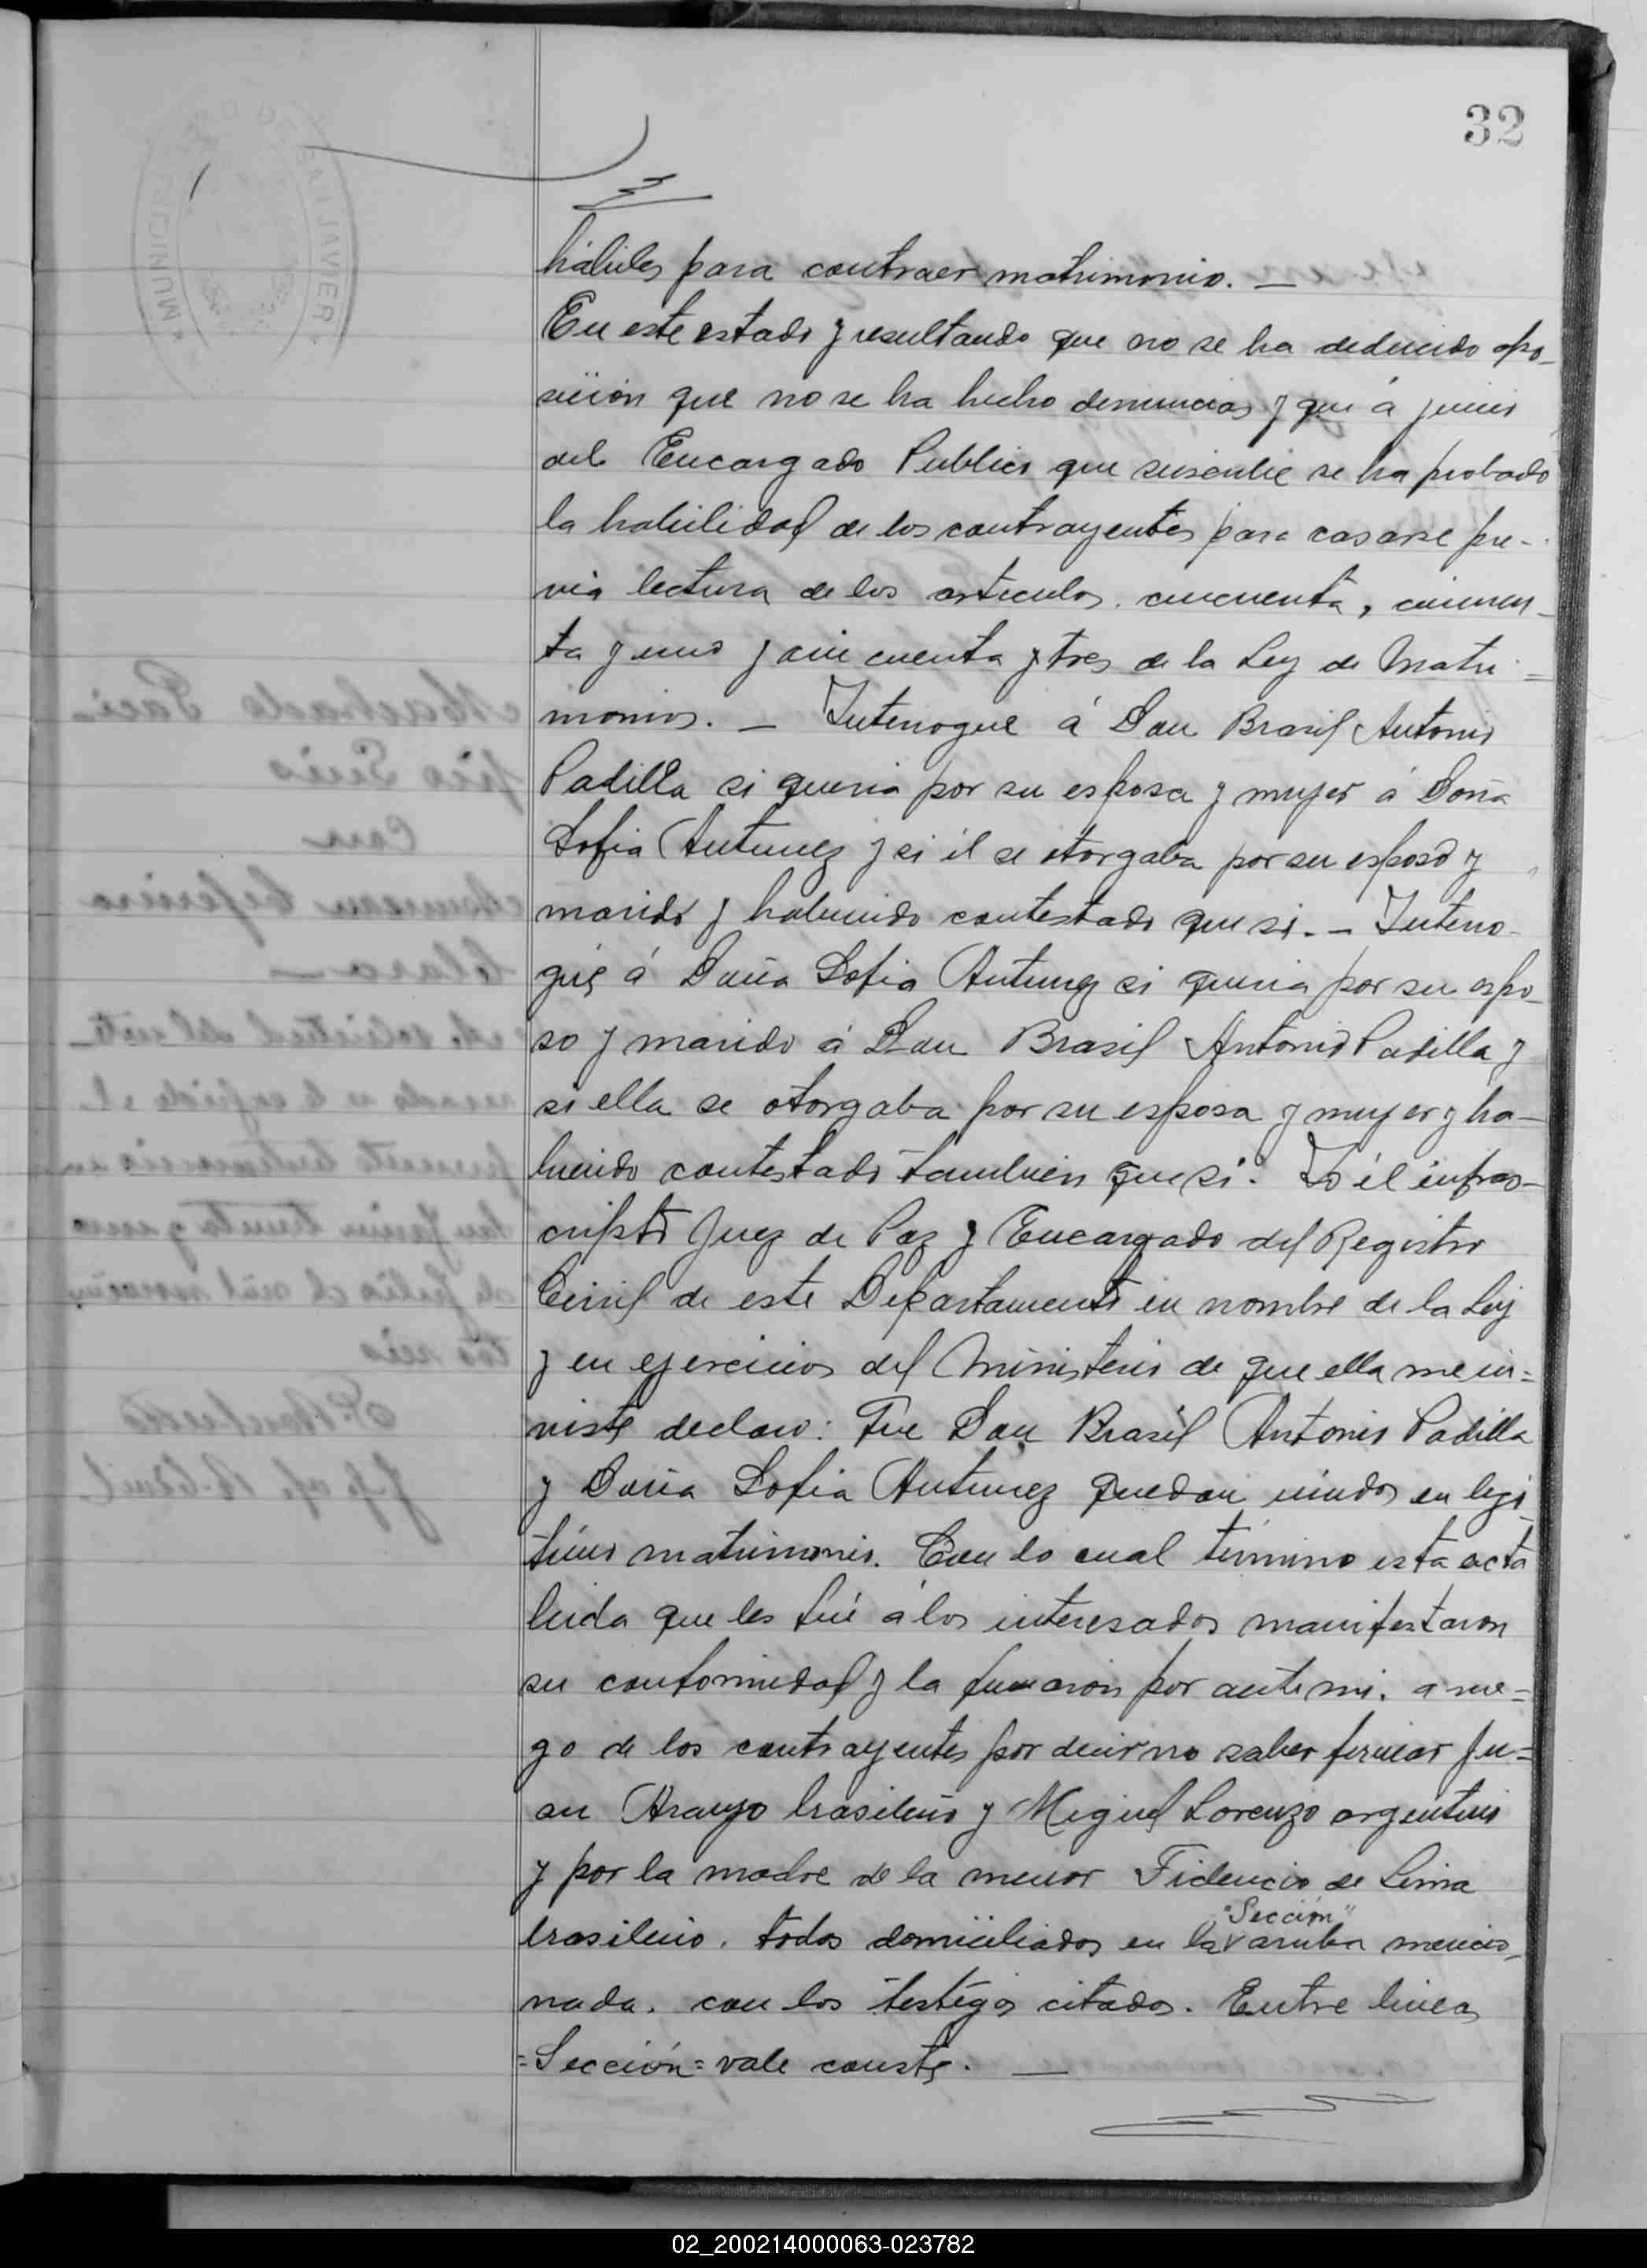 32
hábiles para contraer matrimonio. —
En este estado y resultando que no se ha deducido opo-
sición que no se ha hecho denuncias y que á juicio
del Encargado Publico que suscribe se ha probado
la habilidad de los contrayentes para casarse pre-
via lectura de los articulos, cincuenta, cincuen-
ta y uno y cincuenta y tres de la Ley de Matri=
monios. — Interrogué á Don Brasil Antonio
Padilla si queria por su esposa y mujer á Doña
Sofia Antunez y si él se otorgaba por su esposo y
marido y habiendo contestado que si. — Interro-
gué á Doña Sofia Antunez si queria por su espo-
so y marido á Don Brasil Antonio Padilla y
si ella se otorgaba por su esposa y mujer y ha-
biendo contestado tambien que si. Yo él infras-
cripto Juez de Paz y Encargado del Registro
Civil de este Departamento en nombre de la Ley
y en ejercicios del Ministerio de que ella me in=
viste declaro: Que Don Brasil Antonio Padilla
y Doña Sofia Antunez quedan unidos en legi-
timo matrimonio. Con lo cual termino esta acta
leida que les fué á los interesados manifestaron
su conformidad y la firmaron por ante mi. a rue=
go de los contrayentes por decir no saber firmar Ju=
an Araujo brasileño y Miguel Lorenzo argentino
y por la madre de la menor Fidencio de Lima
"Sección"
brasileño. todos domiciliados en la arriba mencio-
nada. con los testigos citados. Entre lineas
=Sección= vale conste. —
02_200214000063-023782